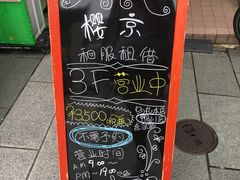 樱京
和服租借
3F 营业中
¥3500
不需予约
营业时间
AM 9:00~
PM~19:00